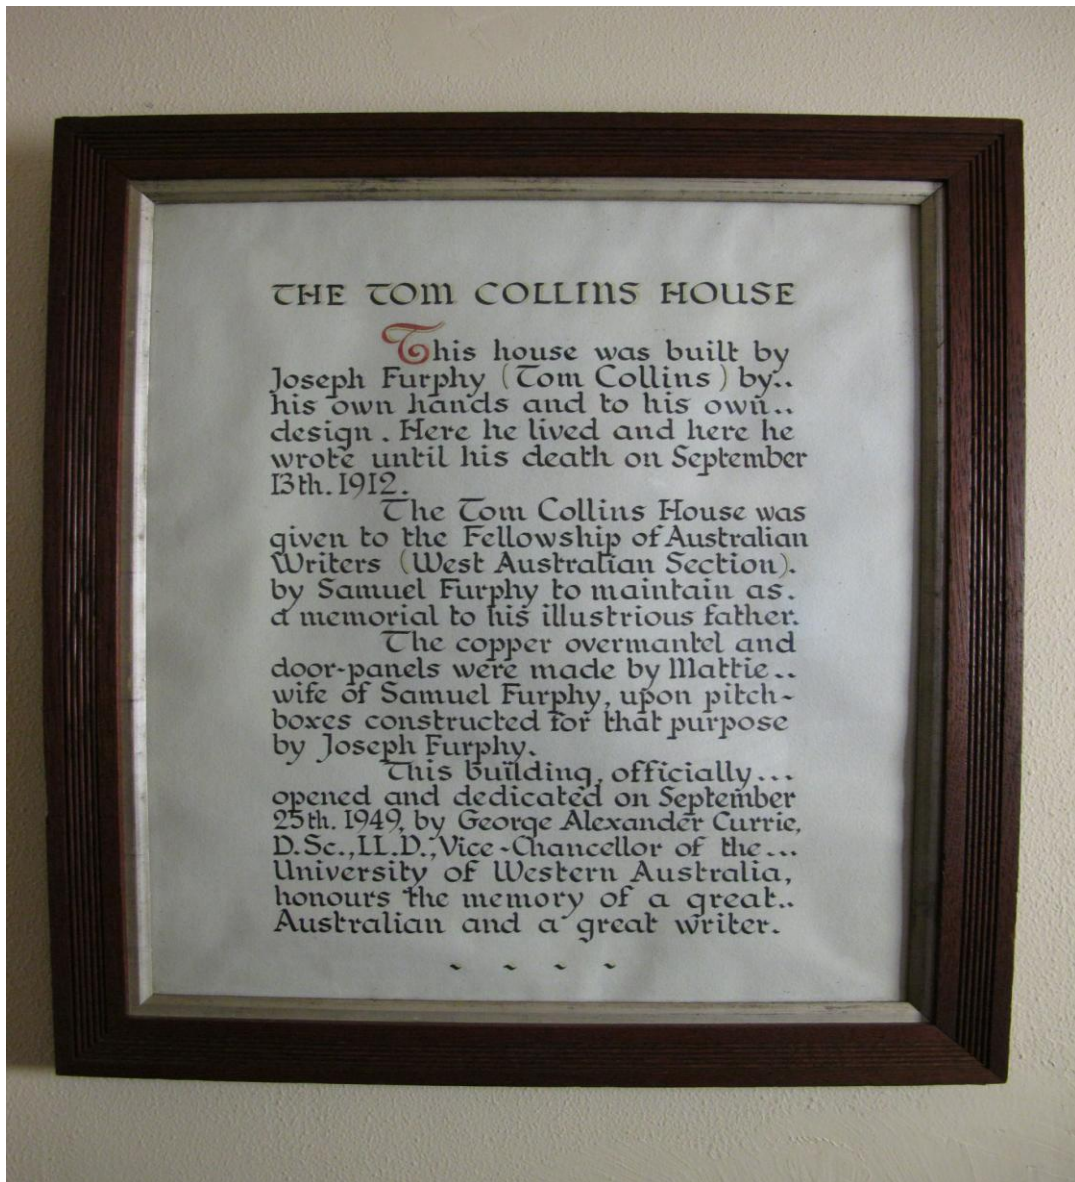 THE TOM COLLINS HOUSE
This house was built by
Joseph Furphy (Tom Collins) by..
his own hands and to his own..
design. Here he lived and here he
wrote until his death on September
13th. 1912.
The Tom Collins House was
given to the Fellowship of Australian
Writers (West Australian Section).
by Samuel Furphy to maintain as.
a memorial to his illustrious father.
The copper overmantel and
door-panels were made by Mattie..
wife of Samuel Furphy, upon pitch-
boxes constructed for that purpose
by Joseph Furphy.
This building, officially...
opened and dedicated on September
25th. 1949, by George Alexander Currie,
D.Sc., LL.D., Vice-Chancellor of the...
University of Western Australia,
honours the memory of a great..
Australian and a great writer.
~ ~ ~ ~